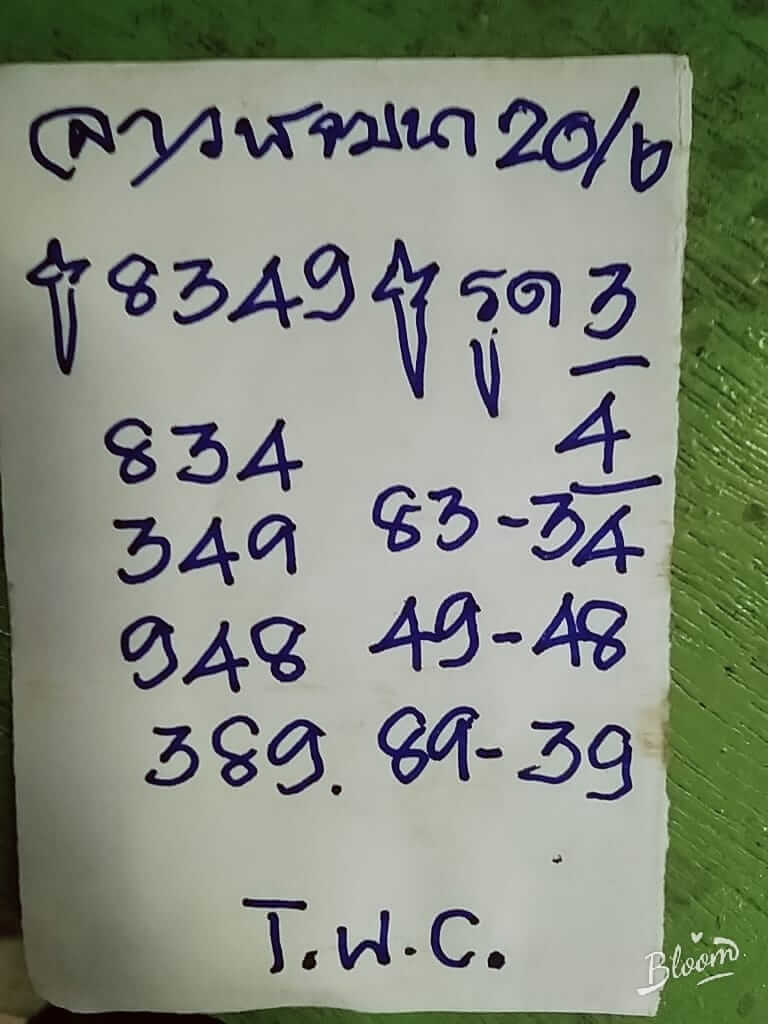 ลาวพัฒนา 20/6
8349 รูด 3
4
834
349 83-34
948 49-48
389. 89-39
T.W.C.
Bloom